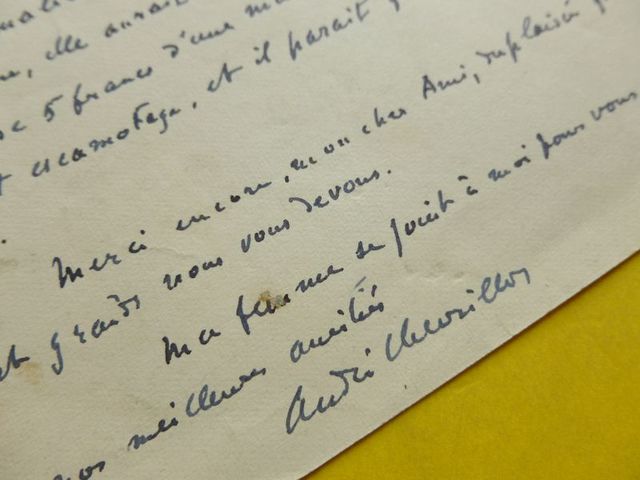 elle aurait
5 francs d'une
escamotage, et il parait
Merci encore, mon cher Ami, du plaisir
grands nous vous devons.
Ma femme se joint à moi pour vous
nos meilleures amitiés
André Chevrillon